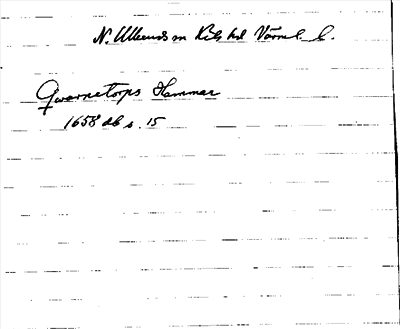 N. Ullerud sn Kils hd Värml. l.
Qwarnetorps Hammar
1658 db s. 15